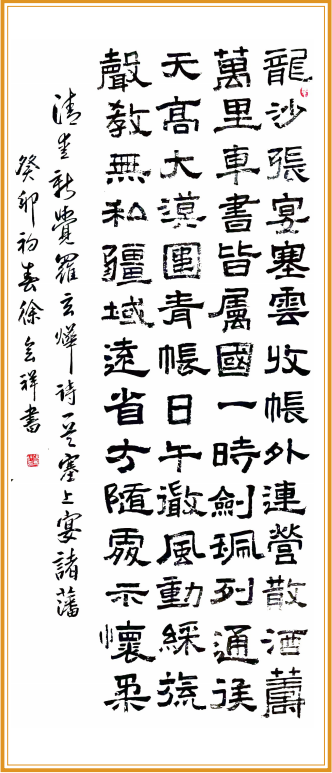 龍沙張宴塞雲收帳外連營散酒籌
萬里車書皆屬國一時劍珮列通侯
天高大漠圍青帳日午微風動綵斿
聲教無私疆域遠省方隨處示懷柔
清愛新覺羅玄燁詩一首塞上宴諸藩
癸卯初春徐金祥書